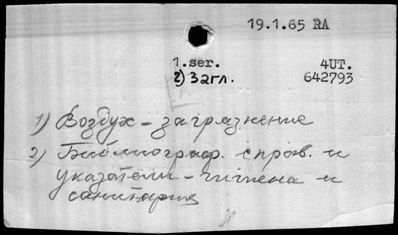 19.1.65 RA
1.ser. 4UT.
2) 3агл. 642793
1) Воздух – загрязнение
2) Библиограф. справ. и
указатели – гигиена и
санитария